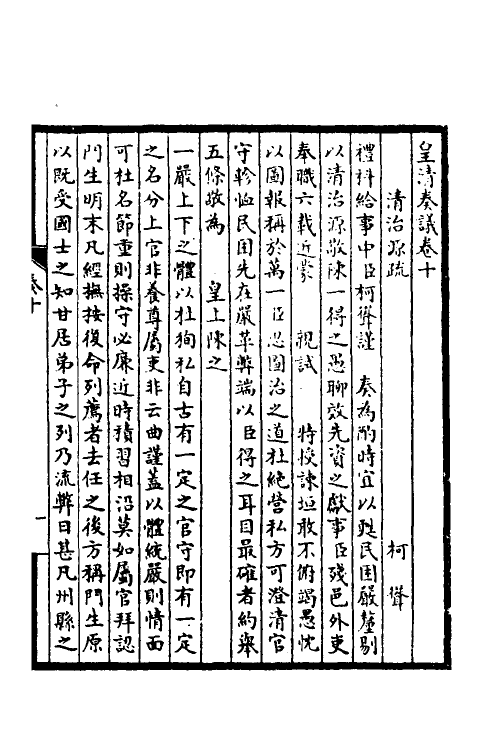 皇清奏議卷十
清治源疏 柯聳
禮科給事中臣柯聳謹 奏為酌時宜以甦民困嚴釐剔
以清治源敬陳一得之愚聊效先資之獻事臣殘邑外吏
奉職六載近蒙 親試 特授諫垣敢不俯竭愚忱
以圖報稱於萬一臣思圖治之道杜絶營私方可澄清官
守軫恤民困先在嚴革弊端以臣得之耳目最確者約舉
五條敬為 皇上陳之
一嚴上下之體以杜狥私自古有一定之官守即有一定
之名分上官非養尊屬吏非云曲謹蓋以體統嚴則情面
可杜名節重則操守必廉近時積習相沿莫如屬官拜認
門生明末凡經撫按後命列薦者去任之後方稱門生原
以既受國士之知甘居弟子之列乃流弊日甚凡州縣之
卷十
一